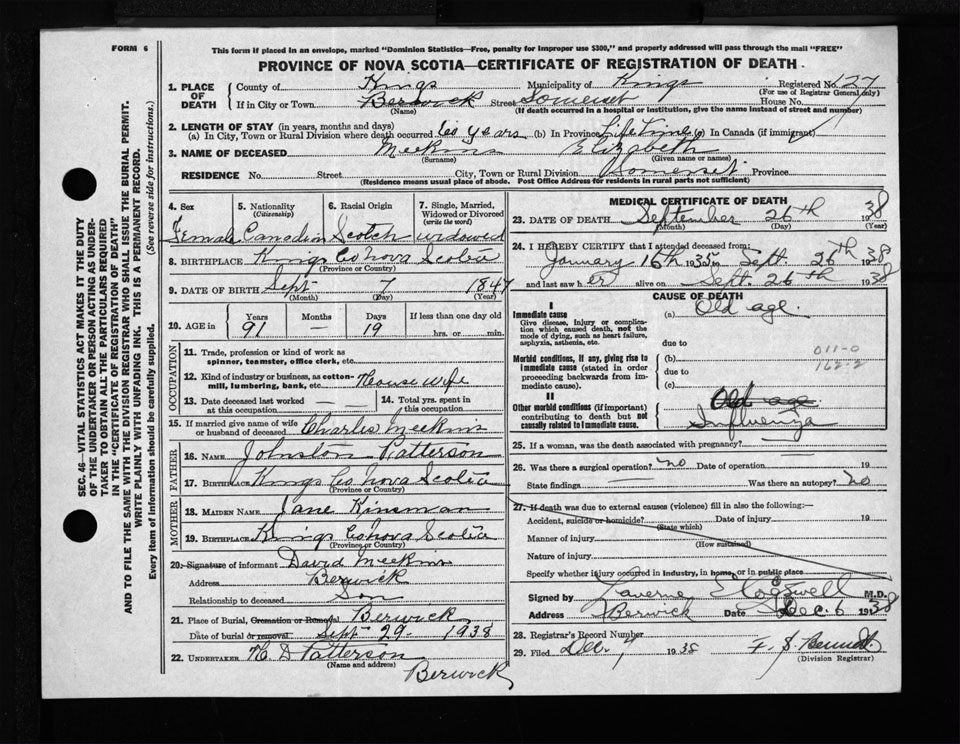 FORM 6
This form if placed in an envelope, marked "Dominion Statistics—Free, penalty for improper use $300," and properly addressed will pass through the mail "FREE"
PROVINCE OF NOVA SCOTIA—CERTIFICATE OF REGISTRATION OF DEATH
SEC. 46—VITAL STATISTICS ACT MAKES IT THE DUTY
OF THE UNDERTAKER OR PERSON ACTING AS UNDER-
TAKER TO OBTAIN ALL THE PARTICULARS REQUIRED
IN THE "CERTIFICATE OF REGISTRATION OF DEATH"
AND TO FILE THE SAME WITH THE DIVISION REGISTRAR WHO SHALL ISSUE THE BURIAL PERMIT.
WRITE PLAINLY WITH UNFADING INK. THIS IS A PERMANENT RECORD.
Every item of information should be carefully supplied. (See reverse side for instructions.)
1. PLACE OF DEATH County of Kings Municipality of Kings Registered No. 127
(For use of Registrar General only)
If in City or Town Berwick Street Somerset House No.
(Name) (If death occurred in a hospital or institution, give the name instead of street and number)
2. LENGTH OF STAY (in years, months and days)
(a) In City, Town or Rural Division where death occurred 60 years (b) In Province Life Time (c) In Canada (if immigrant)
3. NAME OF DECEASED Meekins Elizabeth
(Surname) (Given name or names)
RESIDENCE No. Street City, Town or Rural Division Somerset Province
(Residence means usual place of abode. Post Office Address for residents in rural parts not sufficient)
4. Sex 5. Nationality (Citizenship) 6. Racial Origin 7. Single, Married, Widowed or Divorced (write the word)
Female Canadian Scotch widowed
8. BIRTHPLACE Kings Co Nova Scotia
(Province or Country)
9. DATE OF BIRTH Sept 7 1847
(Month) (Day) (Year)
10. AGE in Years Months Days If less than one day old
91 — 19 hrs. or min.
OCCUPATION
11. Trade, profession or kind of work as spinner, teamster, office clerk, etc.
12. Kind of industry or business, as cotton-mill, lumbering, bank, etc. House wife
13. Date deceased last worked at this occupation — 14. Total yrs. spent in this occupation
15. If married give name of wife or husband of deceased Charlie Meekins
FATHER
16. Name Johnston Patterson
17. Birthplace Kings Co Nova Scotia
(Province or Country)
MOTHER
18. Maiden Name Jane Kinsman
19. Birthplace Kings Co Nova Scotia
(Province or Country)
20. Signature of informant David Meekins
Address Berwick
Relationship to deceased Son
21. Place of Burial, Cremation or Removal Berwick
Date of burial or removal Sept 29 - 1938
22. UNDERTAKER H D Patterson
(Name and address)
Berwick
MEDICAL CERTIFICATE OF DEATH
23. DATE OF DEATH September 26th 1938
(Month) (Day) (Year)
24. I HEREBY CERTIFY that I attended deceased from:
January 16th 1935 to Sept. 26th 1938
and last saw her alive on Sept. 26th 1938
CAUSE OF DEATH
I
Immediate cause (a) Old age
Give disease, injury or complication which caused death, not the mode of dying, such as heart failure, asphyxia, asthenia, etc.
due to
Morbid conditions, if any, giving rise to immediate cause (stated in order proceeding backwards from immediate cause).
(b)
due to
(c)
011-0
162-2
II
Other morbid conditions (if important) contributing to death but not causally related to immediate cause.
Old age
Influenza
25. If a woman, was the death associated with pregnancy?
26. Was there a surgical operation? no Date of operation 19
State findings Was there an autopsy? No
27. If death was due to external causes (violence) fill in also the following:—
Accident, suicide or homicide? Date of injury 19
(State which)
Manner of injury
(How sustained)
Nature of injury
Specify whether injury occurred in industry, in home, or in public place
Signed by Laverne E Cogswell M.D.
Address Berwick Date Dec. 6 1938
28. Registrar's Record Number
29. Filed Dec. 7 1938 F. S. Bennett
(Division Registrar)